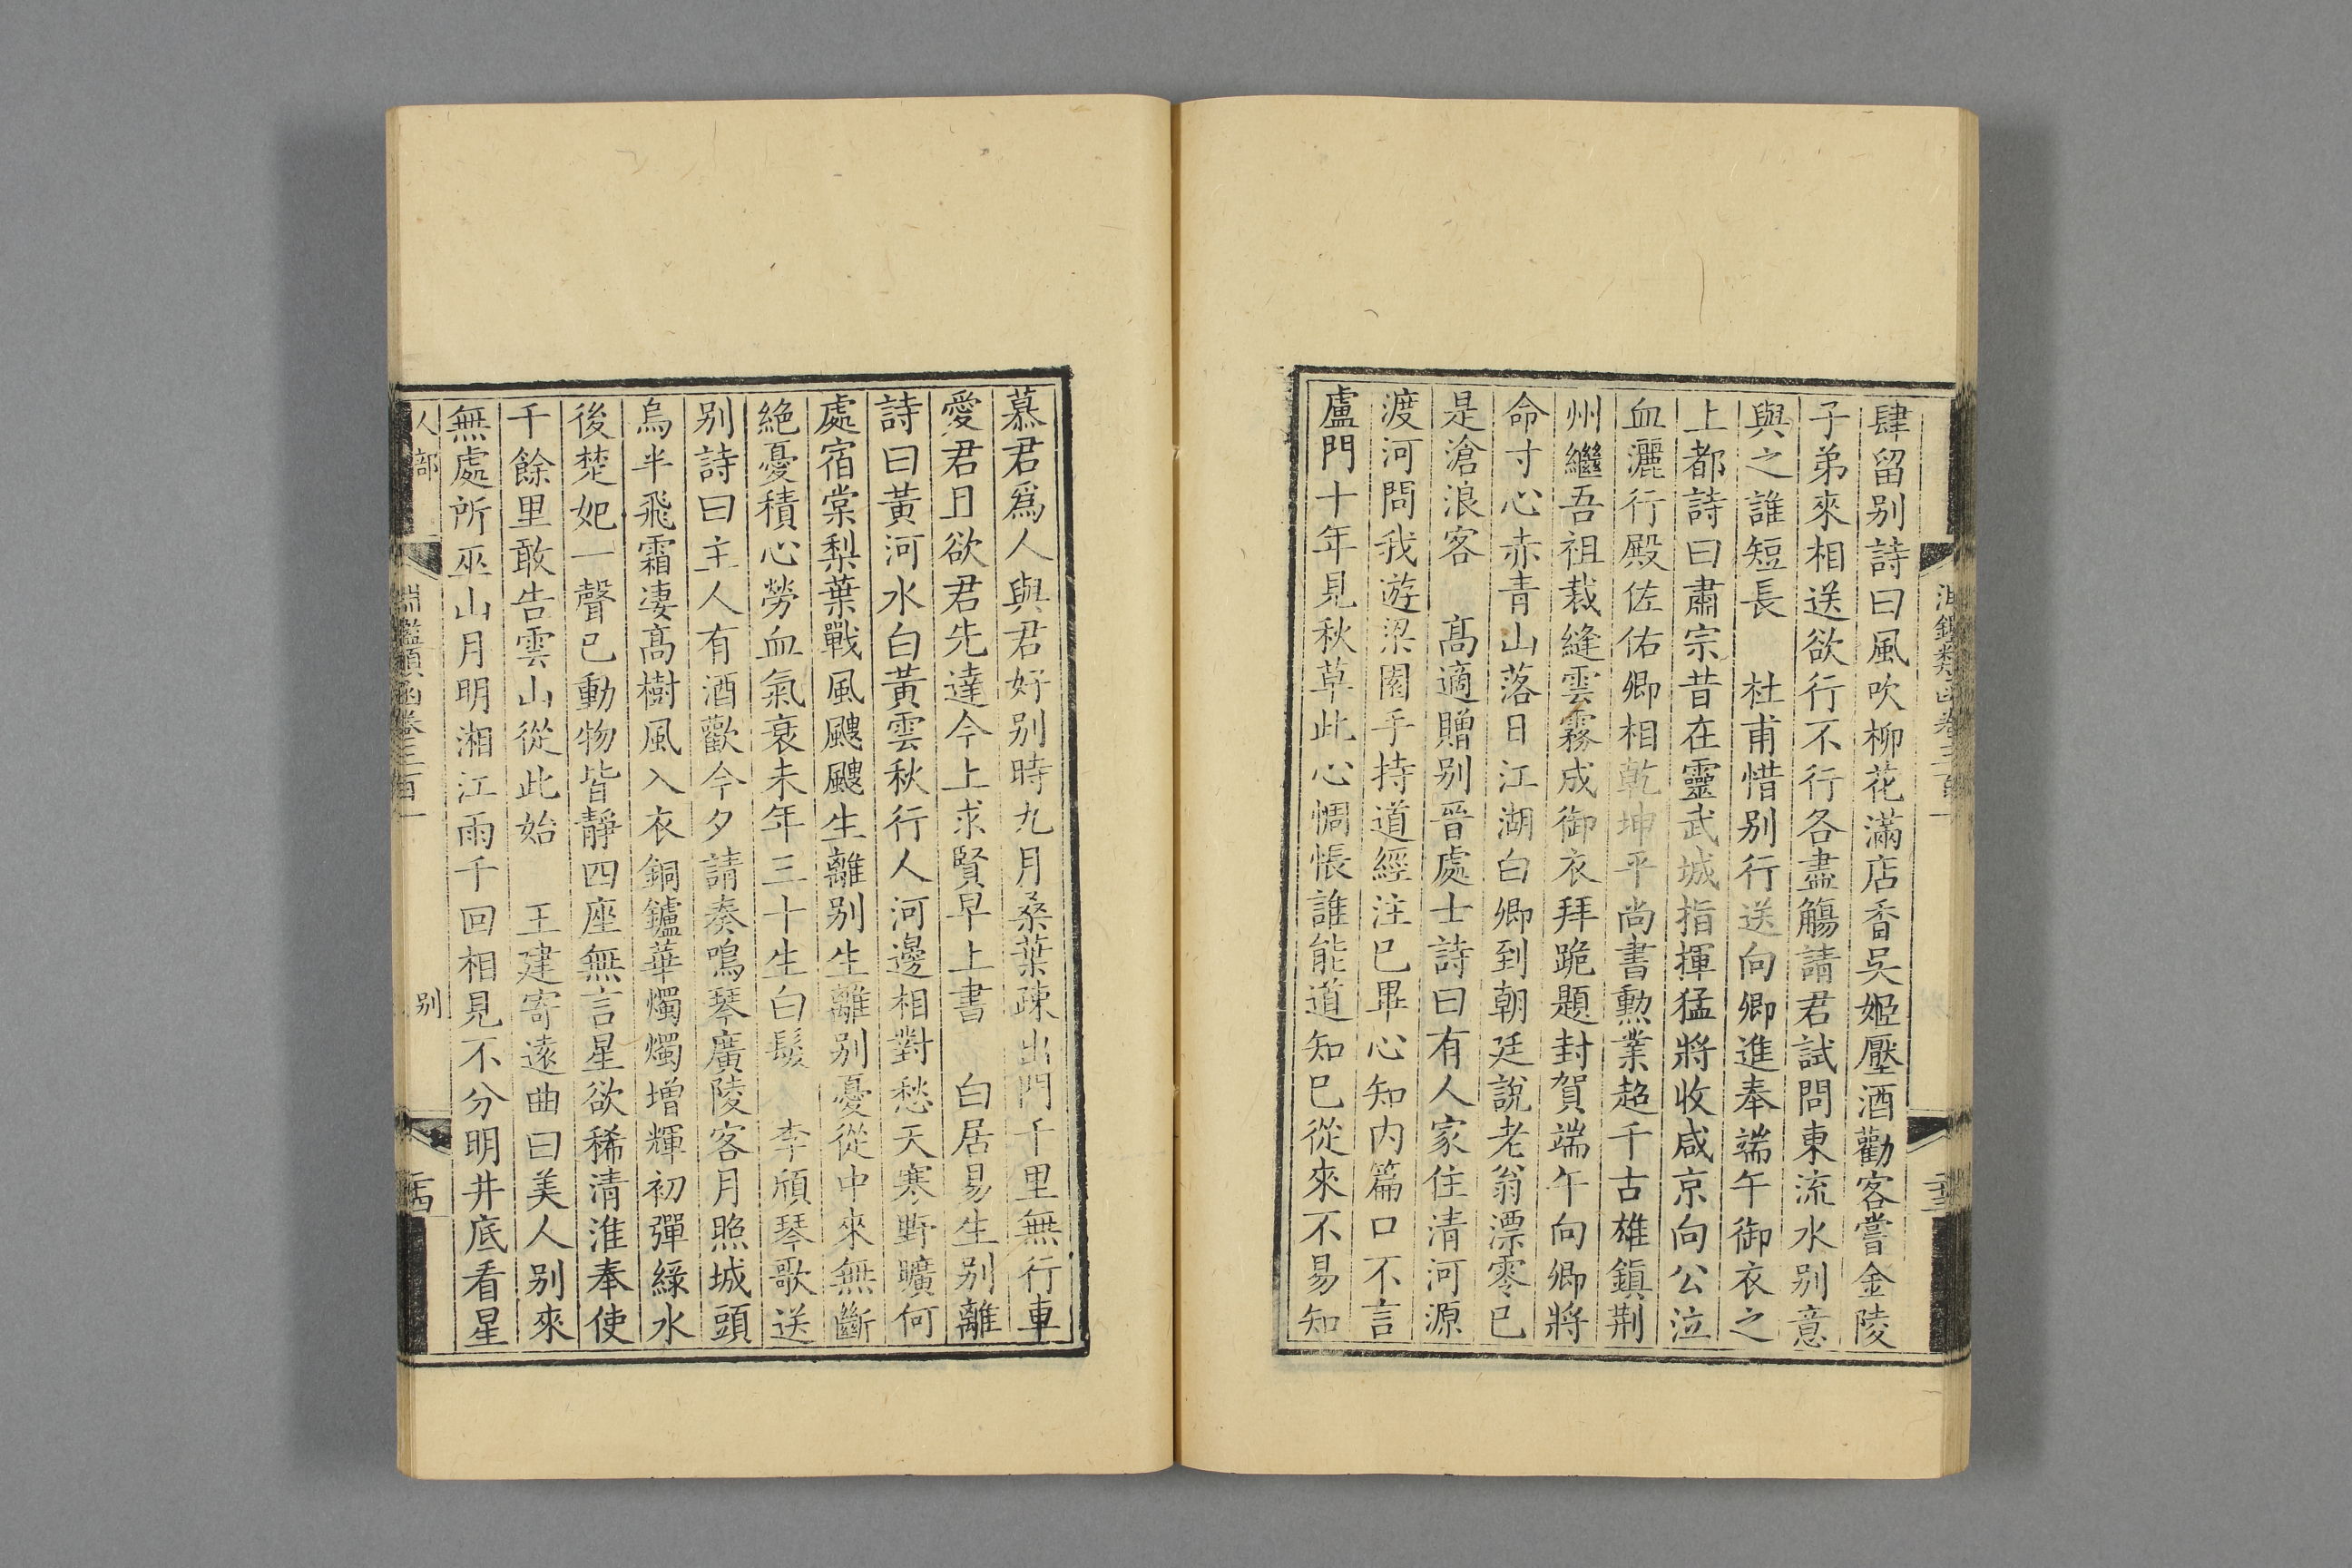 淵鑑類函卷三百一
二十三
肆留别詩曰風吹柳花滿店香吳姬壓酒勸客嘗金陵
子弟來相送欲行不行各盡觴請君試問東流水别意
與之誰短長　杜甫惜别行送向卿進奉端午御衣之
上都詩曰肅宗昔在靈武城指揮猛將收咸京向公泣
血灑行殿佐佑卿相乾坤平尚書勲業超千古雄鎮荆
州繼吾祖裁縫雲霧成御衣拜跪題封賀端午向卿將
命寸心赤青山落日江湖白卿到朝廷說老翁漂零已
是滄浪客　高適贈别晉處士詩曰有人家住清河源
渡河問我遊梁園手持道經注已畢心知内篇口不言
盧門十年見秋草此心惆悵誰能道知已從來不易知
慕君爲人與君好别時九月桑葉疎出門千里無行車
愛君且欲君先達今上求賢早上書　白居易生别離
詩曰黃河水白黃雲秋行人河邊相對愁天寒野曠何
處宿棠梨葉戰風颼颼生離别生離别憂從中來無斷
絶憂積心勞血氣衰未年三十生白髪　李頎琴歌送
别詩曰主人有酒歡今夕請奏鳴琴廣陵客月照城頭
烏半飛霜凄高樹風入衣銅鑪華燭燭增輝初彈緑水
後楚妃一聲已動物皆靜四座無言星欲稀清淮奉使
千餘里敢告雲山從此始　王建寄遠曲曰美人别來
無處所巫山月明湘江雨千回相見不分明井底看星
人部　淵鑑類函卷三百一　别　二十四